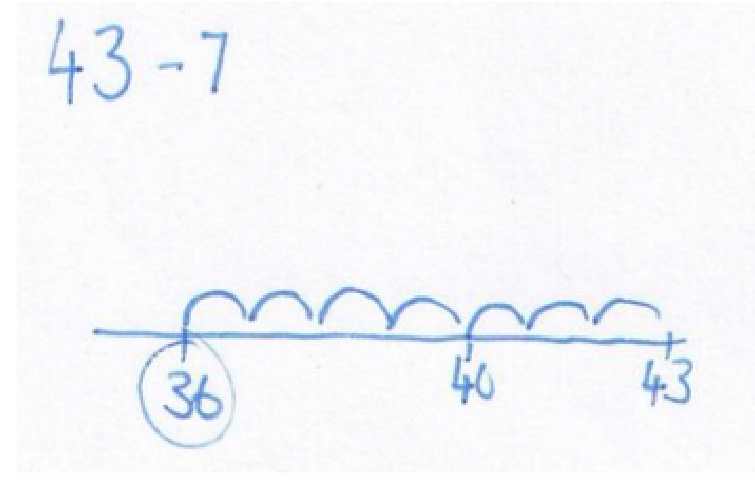 43-7
36 40 43